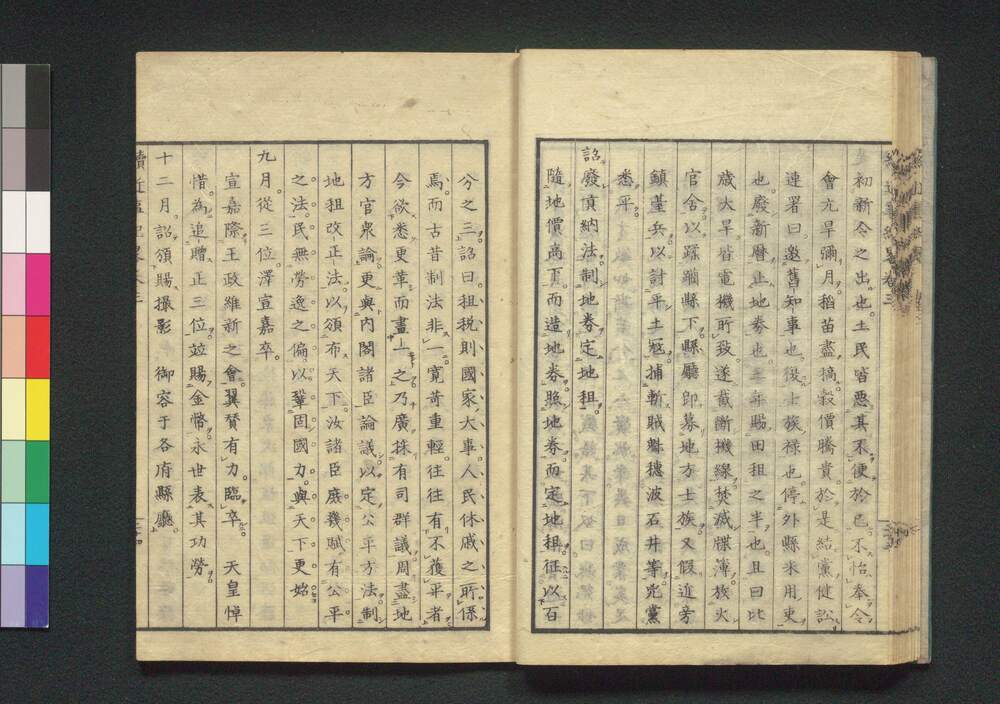 初新令之出也土民皆惡其不便於己不怡奉令
會亢旱彌月稻苗盡槁穀價騰貴於是結黨健訟
連署曰邀舊知事也復士族祿也停外縣米用吏
也廢新曆止地券也三年賜田租之半也且曰比
歲大旱皆電機所致遂截斷機線焚滅牒簿放火
官舍以蹂躪縣下縣廳卽募地方士族又假近旁
鎮臺兵以討平土冦捕斬賊魁穗波石井等兇黨
悉平
詔廢貢納法制地券定地租
隨地價高下而造地券照地券而定地租征以百
分之三詔曰租税則國家大事人民休戚之所係
焉而古昔制法非一寬苛重輕往往有不獲平者
今欲悉更革而畫一之乃廣採有司群議周盡地
方官衆論更與內閣諸臣論議以定公平方法制
地租改正法以頒布天下汝諸臣庶幾賦有公平
之法民無勞逸之偏以鞏固國力與天下更始
九月從三位澤宣嘉卒
宣嘉際王政維新之會翼賛有力臨卒 天皇悼
惜為追贈正三位竝賜金幣永世表其功勞
十二月詔頒賜撮影御容于各府縣廳